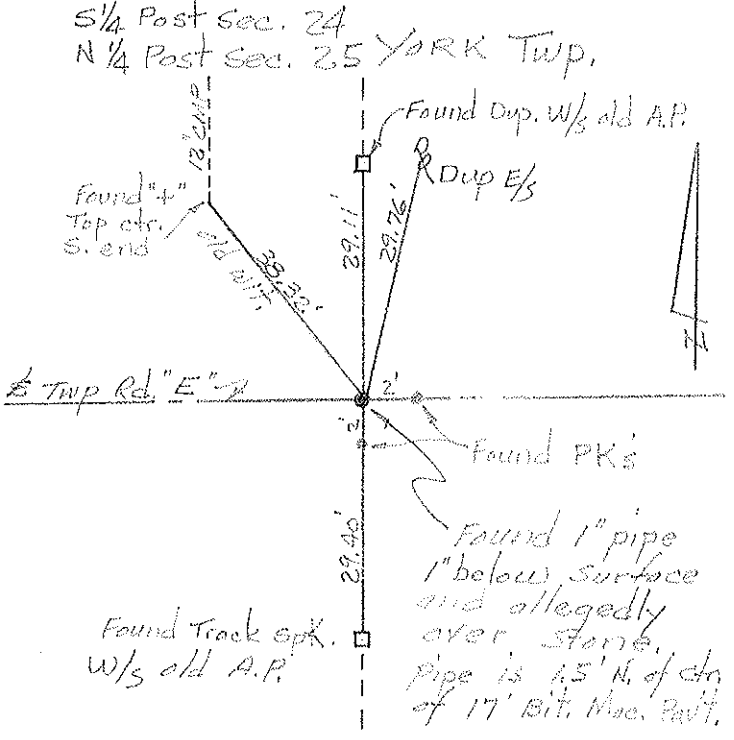 S¼ Post Sec. 24
N¼ Post Sec. 25 YORK Twp.
Found Dup. W/s old A.P.
Dup E/s
12" CMP
Found "+"
Top ctr.
S. end
old wit.
38.32'
29.11'
29.76'
N
℄ Twp Rd. "E"
2'
2'
Found PK's
29.40'
Found 1" pipe
1" below surface
and allegedly
over stone.
Pipe is 1.5' N. of ctr.
of 17' Bit. Mac. Pav't.
Found Track spk.
W/s old A.P.